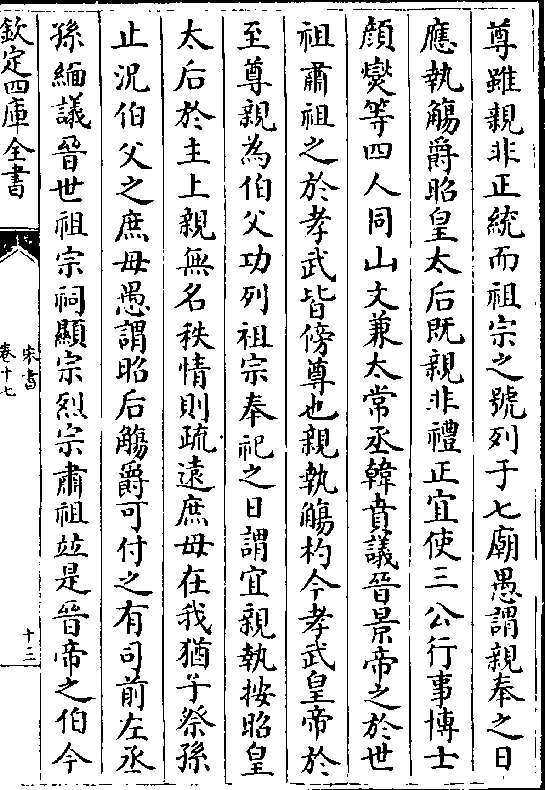 尊雖親非正統而祖宗之號列于七廟愚謂親奉之日
應執觴爵昭皇太后既親非禮正宜使三公行事博士
顔燮等四人同山文兼太常丞韓賁議晉景帝之於世
祖肅祖之於孝武皆傍尊也親執觴杓今孝武皇帝於
至尊親為伯父功列祖宗奉祀之日謂宜親執按昭皇
太后於主上親無名秩情則疏遠庶母在我猶子祭孫
止況伯父之庶母愚謂昭后觴爵可付之有司前左丞
孫緬議晉世祖宗祠顯宗烈宗肅祖竝是晉帝之伯今
欽定四庫全書
宋書
卷十七
十三